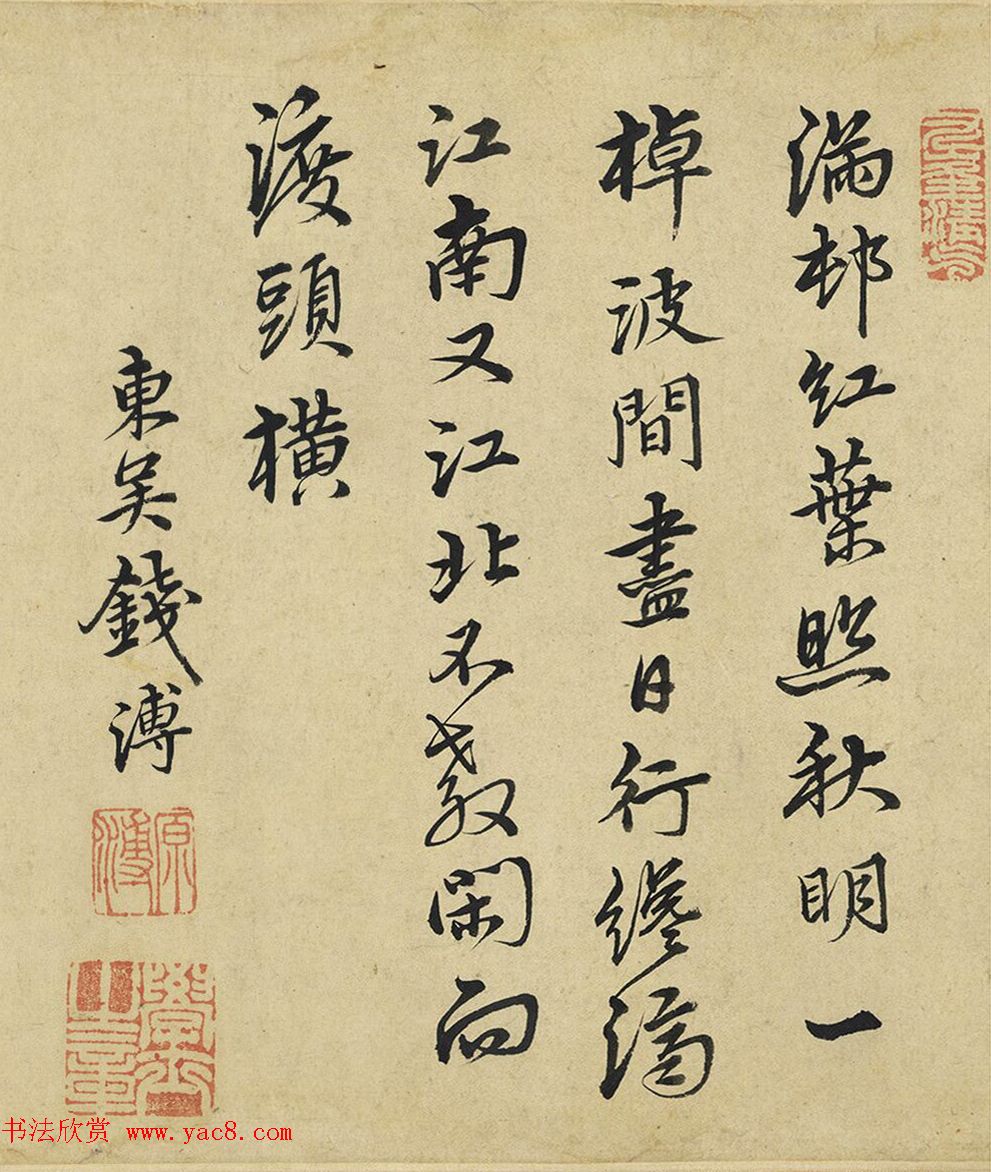 滿邨紅葉照秋明一
棹波間盡日行纔濟
江南又江北不教閑向
渡頭橫
東吳錢溥
原溥
书法欣赏 www.yac8.com